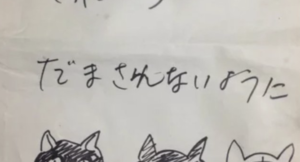 だまさんないように